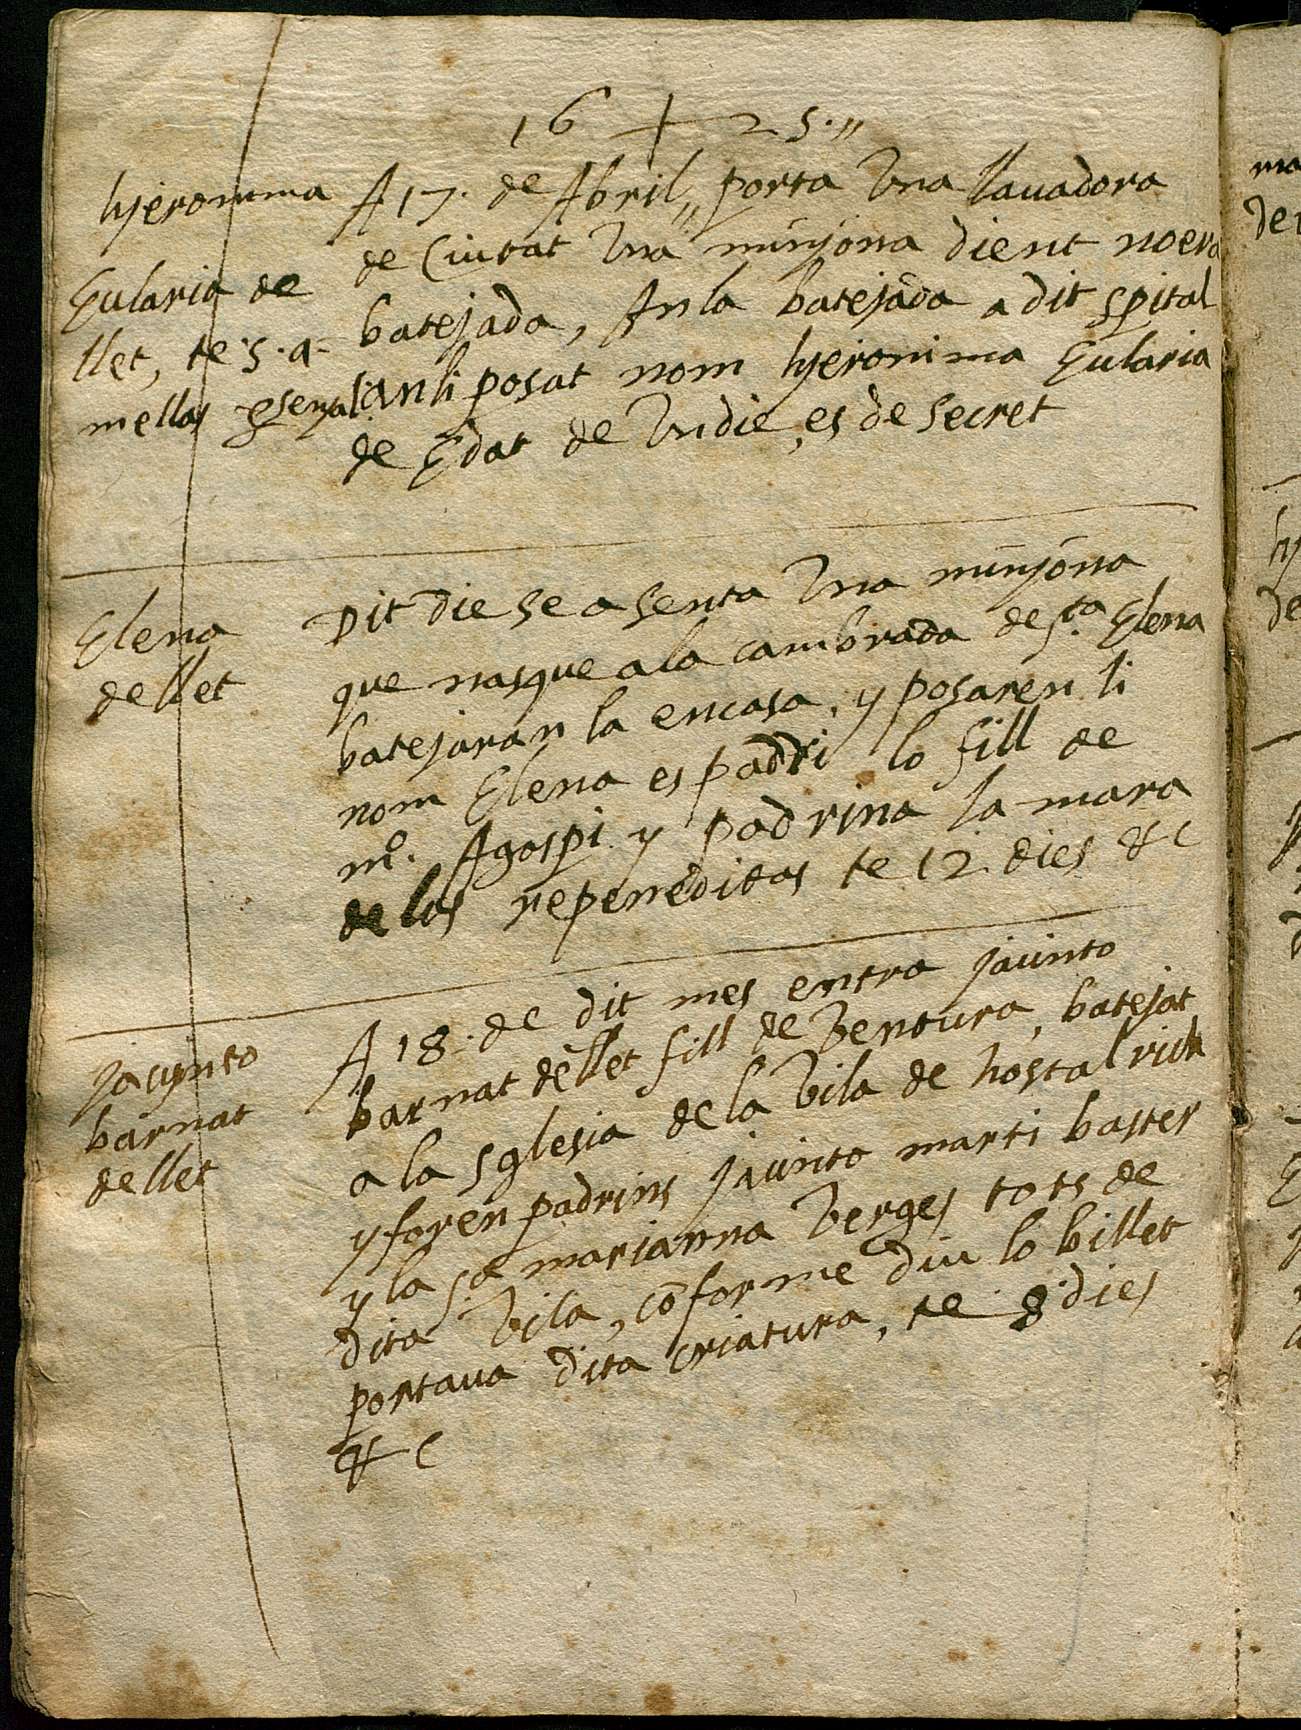 16 + 25.,,
hjeronima
Eularia de
llet, te .5. a=
mellas per senyal
A 17. de Abril,, porta Vna llauadora
de Ciutat Vna minjona dient no era
batejada, An la batejada a dit spital
an li posat nom hjeronima Eularia
de Edat de Vn die, es de secret
Elena
de llet
Dit die se asenta Vna minjona
que nasque a la cambrada de sta. Elena
batejaran la en casa, y posaren li
nom Elena es padri lo fill de
mo. Agospi y padrina la mara
de las repenedidas te 12 dies &c
Jacynto
barnat
de llet
A 18. de dit mes entra Jacinto
barnat de llet fill de Ventura, batejat
a la sglesia de la Vila de hostalrich
y foren padrins Jacinto marti baster
y la sa. marianna Verges tots de
dita Vila, cõforme diu lo billet
portaua dita criatura, te 8 dies
&c
ma